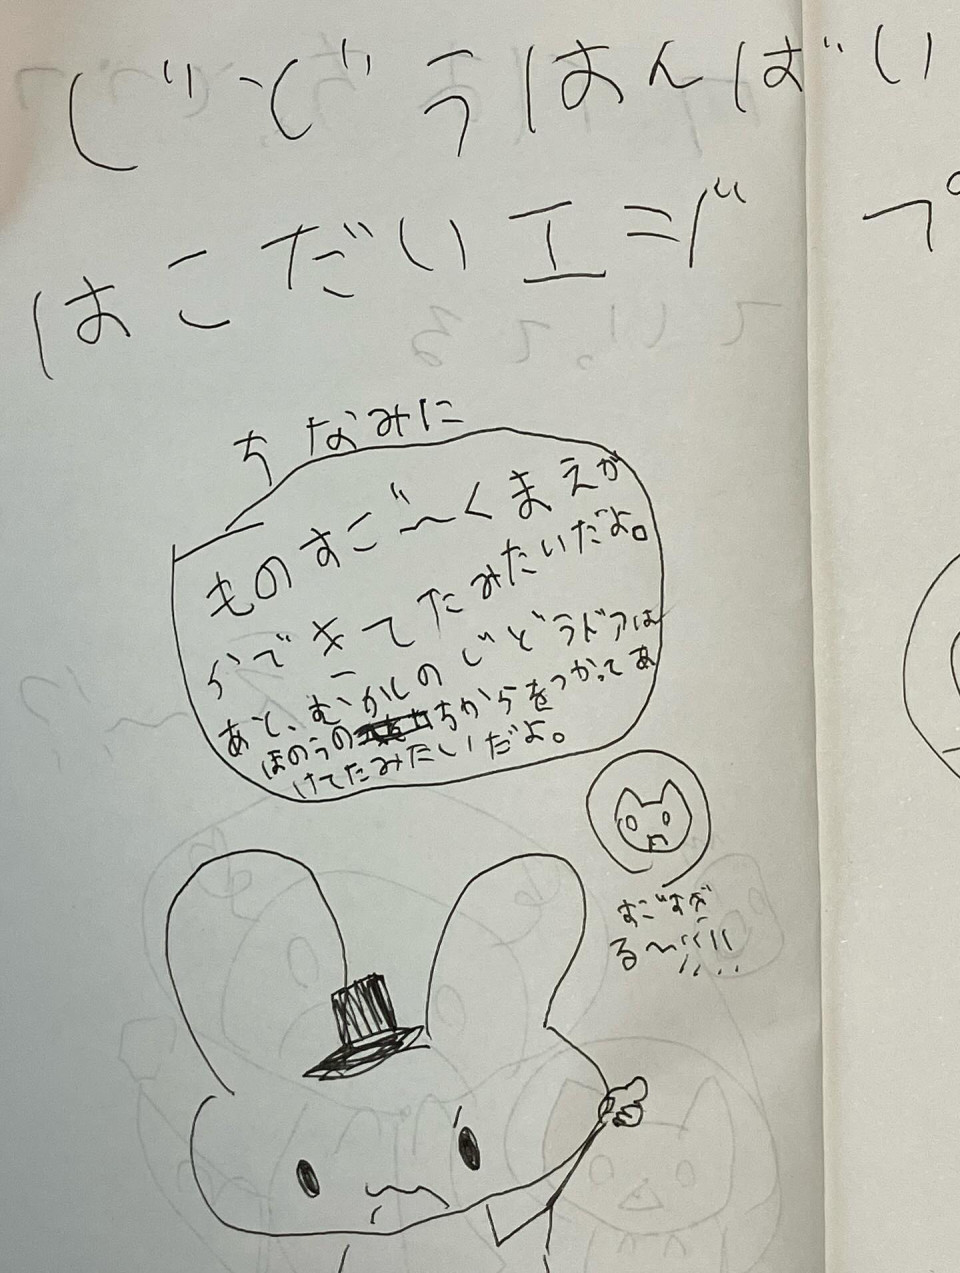 じどうはんばい
はこだいエジプ
ちなみに
ものすご〜くまえか
らできてたみたいだよ。
あと、むかしのじどうドアは
ほのうのちからをつかってあ
けてたみたいだよ。
すごすぎ
る〜!!!!